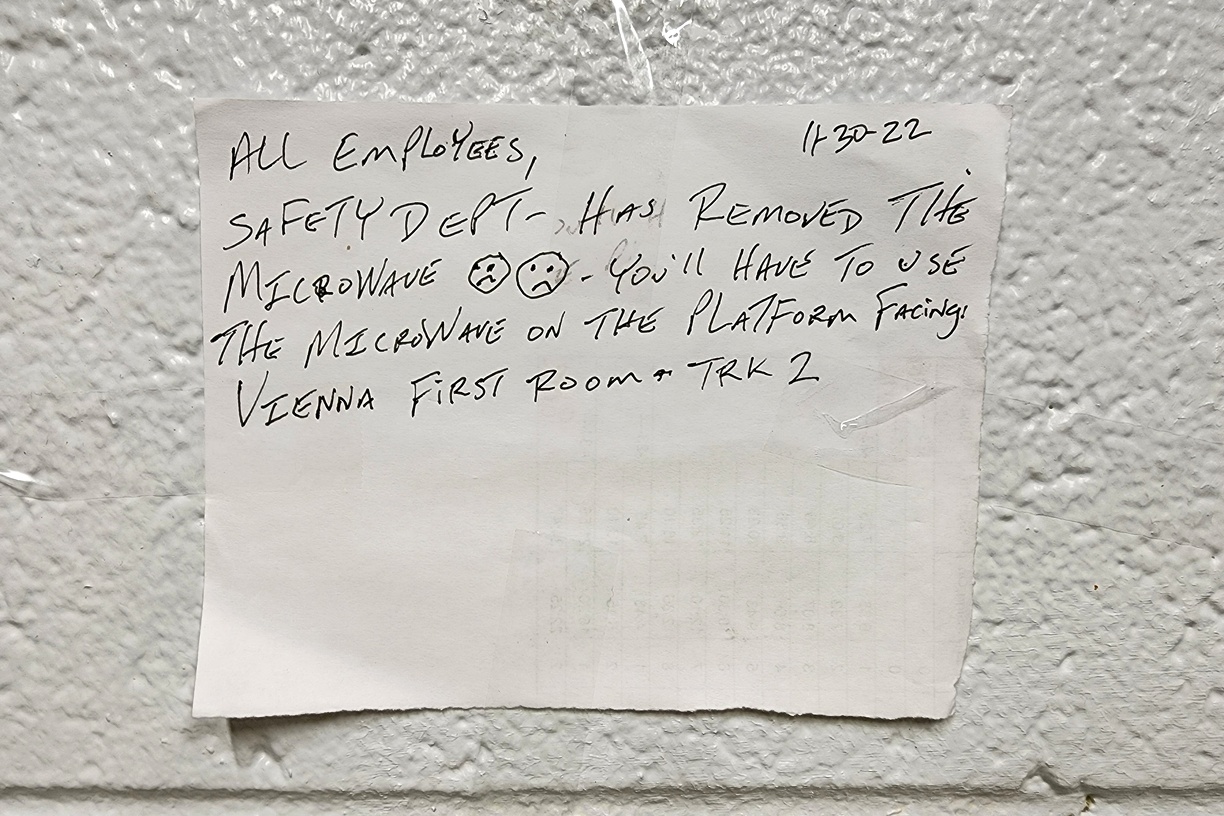 ALL EMPLOYEES, 11-30-22
SAFETY DEPT- HAS REMOVED THE
MICROWAVE ☹☹ - YOU'll HAVE TO USE
THE MICROWAVE ON THE PLATFORM FACING
VIENNA FIRST ROOM TRK 2